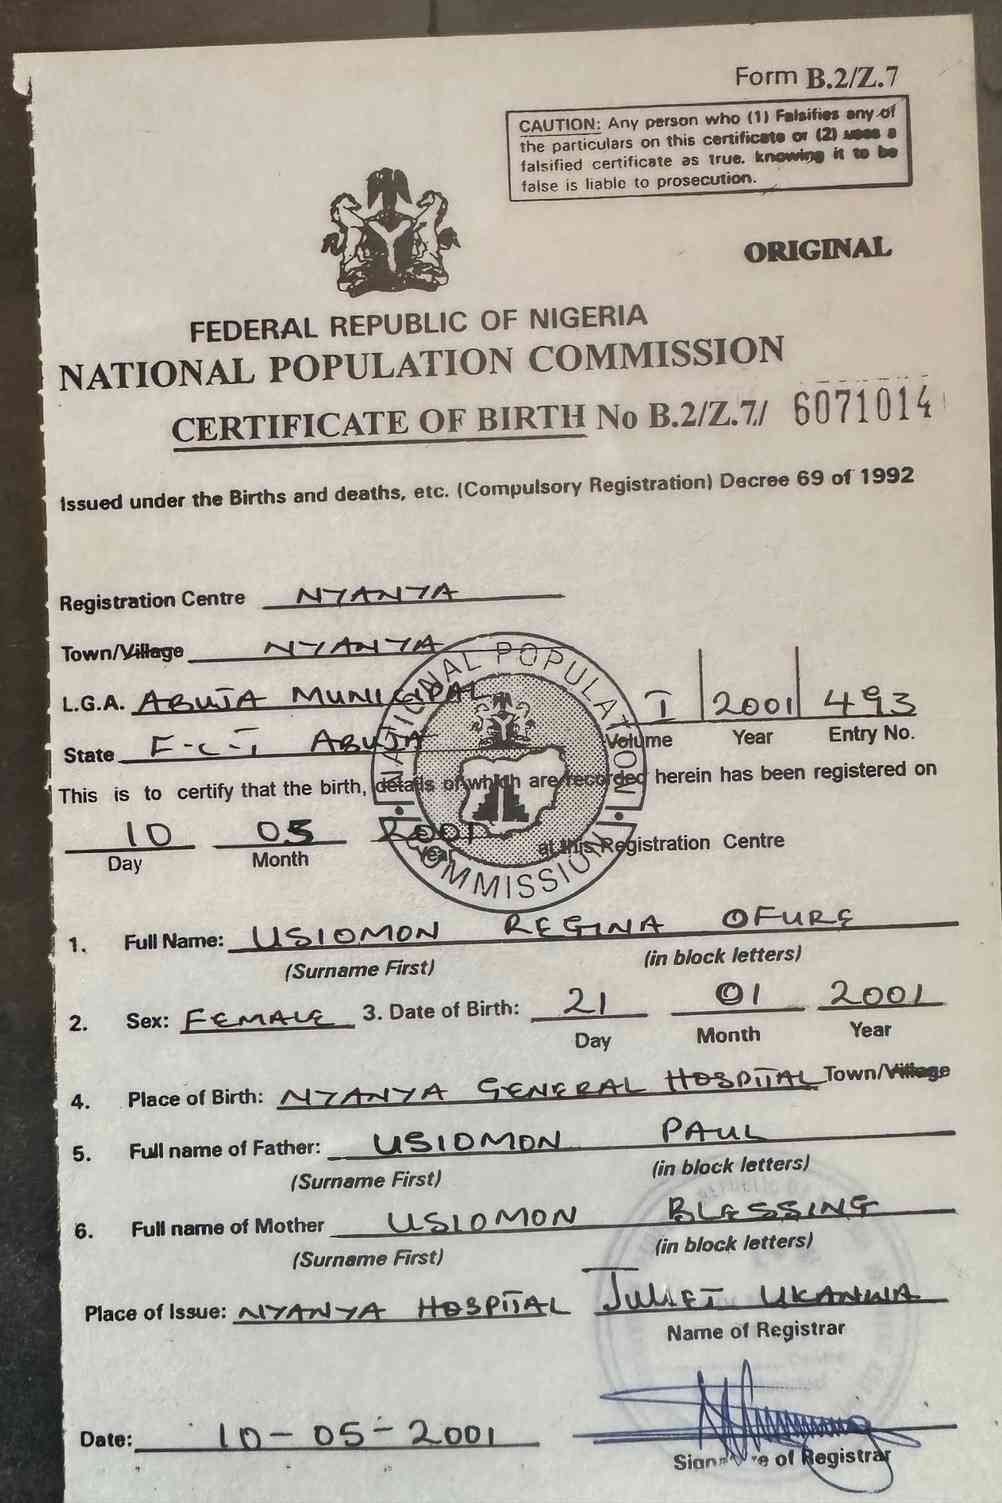 Form B.2/Z.7
CAUTION: Any person who (1) Falsifies any of
the particulars on this certificate or (2) uses a
falsified certificate as true. knowing it to be
false is liable to prosecution.
ORIGINAL
FEDERAL REPUBLIC OF NIGERIA
NATIONAL POPULATION COMMISSION
CERTIFICATE OF BIRTH No B.2/Z.7/ 6071014
Issued under the Births and deaths, etc. (Compulsory Registration) Decree 69 of 1992
Registration Centre NYANYA
Town/Village NYANYA
NATIONAL POPULATION COMMISSION
L.G.A. ABUJA MUNICIPAL I 2001 493
State F-C-T ABUJA Volume Year Entry No.
This is to certify that the birth, details of which are recorded herein has been registered on
10 05 2001 at this Registration Centre
Day Month Year
1. Full Name: USIOMON REGINA OFURE
(Surname First) (in block letters)
2. Sex: FEMALE 3. Date of Birth: 21 01 2001
Day Month Year
4. Place of Birth: NYANYA GENERAL HOSPITAL Town/Village
5. Full name of Father: USIOMON PAUL
(Surname First) (in block letters)
6. Full name of Mother USIOMON BLESSING
(Surname First) (in block letters)
Place of Issue: NYANYA HOSPITAL JULIET UKANWA
Name of Registrar
Date: 10-05-2001
Signature of Registrar